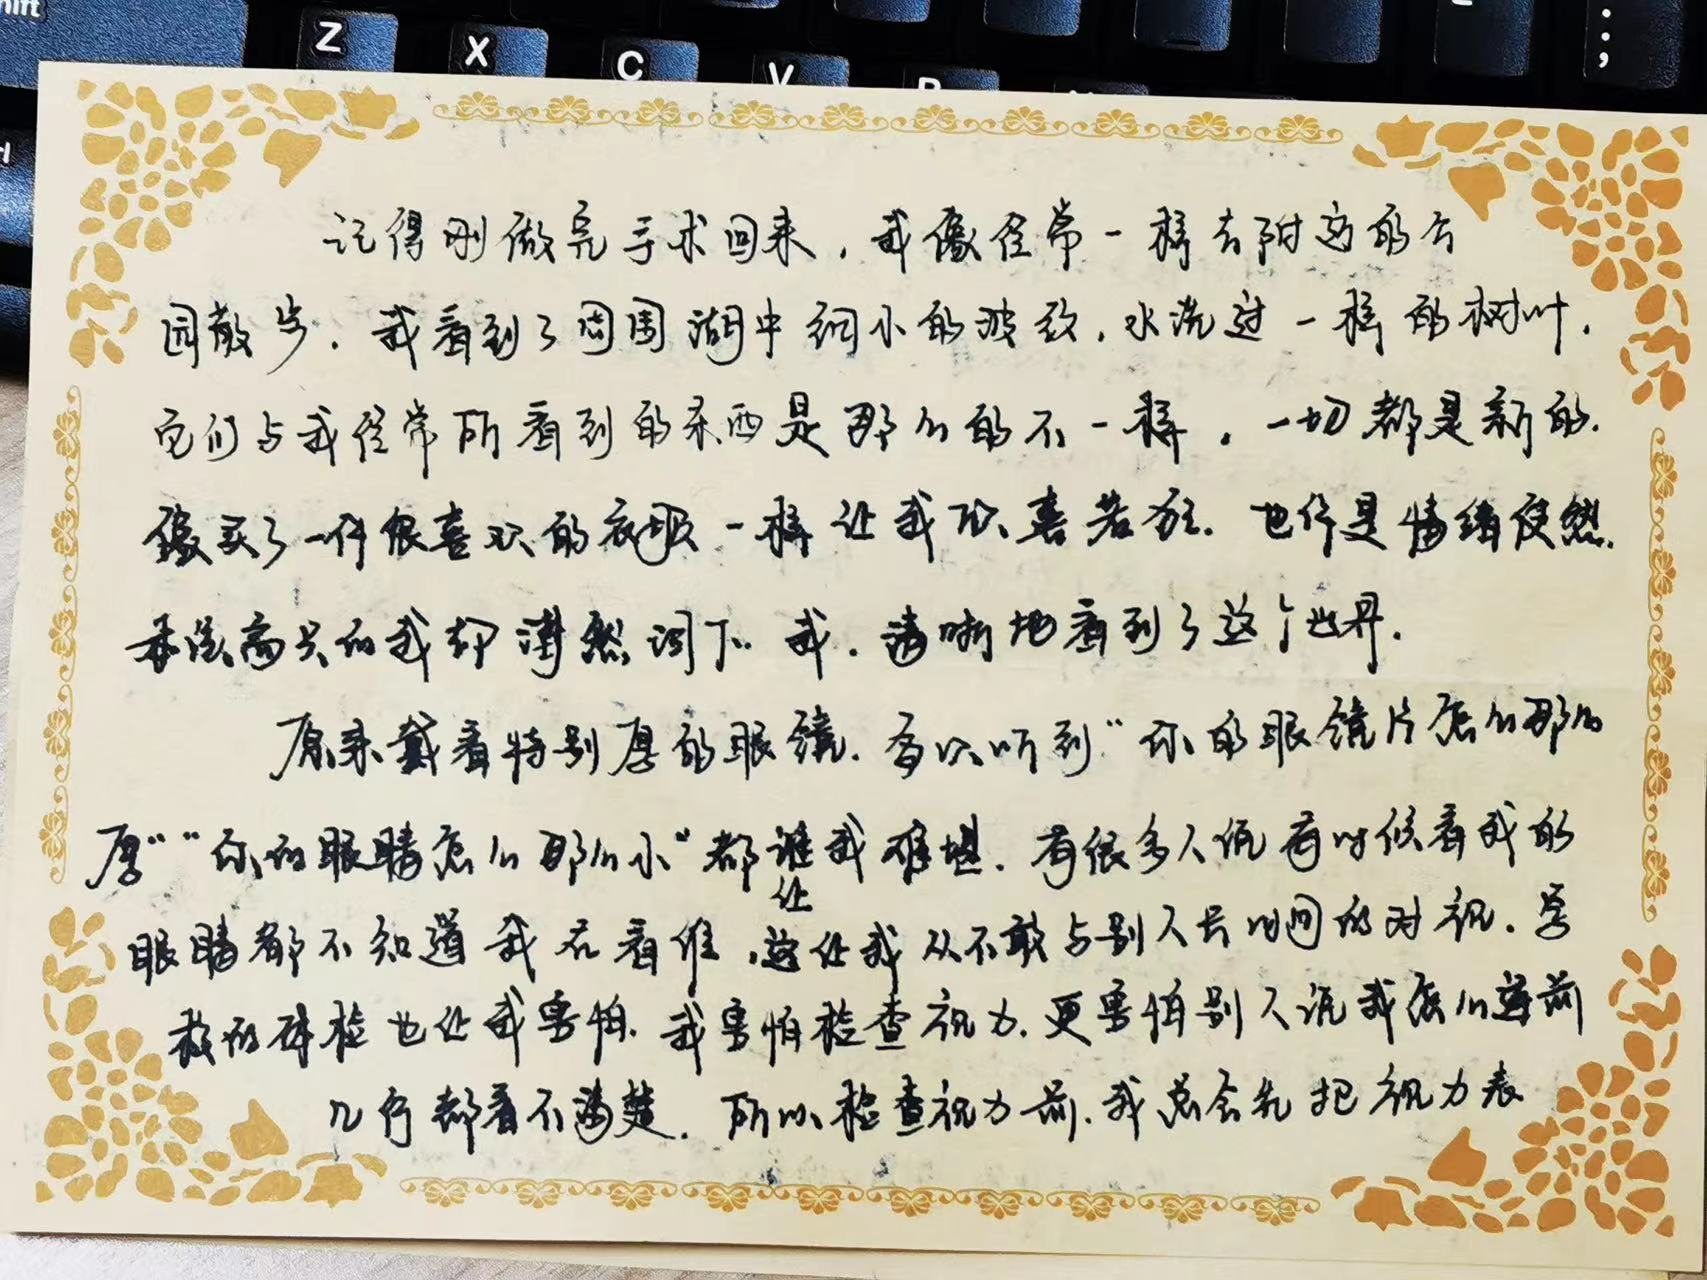 Z X C V
记得刚做完手术回来，我像经常一样去附近的公
园散步，我看到了周围湖中细小的波纹，水洗过一样的树叶，
它们与我经常所看到的东西是那么的不一样，一切都是新的，
像买了一件很喜欢的衣服一样让我欣喜若狂，也许是情绪使然，
本该高兴的我却潸然泪下，我，清晰地看到了这个世界。
原来戴着特别厚的眼镜，每次听到“你的眼镜片怎么那么
厚”“你的眼睛怎么那么小”都让我难堪，有很多人说有时候看我的
眼睛都不知道我在看谁，这让我从不敢与别人长时间的对视，学
校的体检也让我害怕，我害怕检查视力，更害怕别人说我怎么连前
几行都看不清楚，所以检查视力前，我总会先把视力表